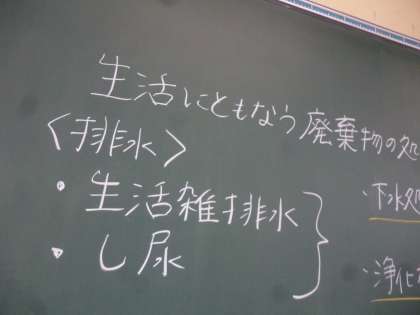 生活にともなう廃棄物の処
〈排水〉
・生活雑排水
・し尿
・下水処
・浄化